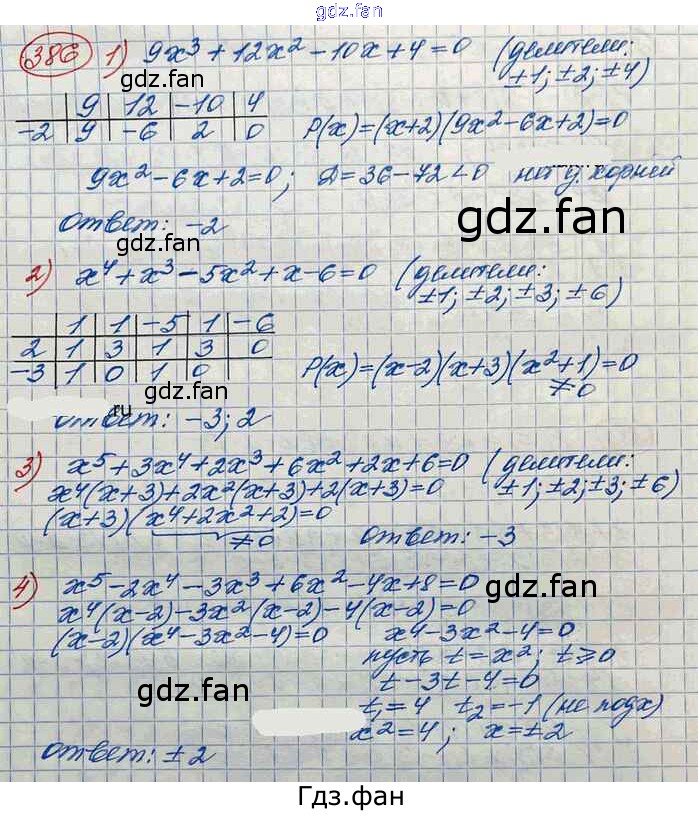 gdz.fan
386 1) 9x³+12x²-10x+4=0 (делители: ±1; ±2; ±4)
gdz.fan gdz.fan
9 12 -10 4
-2 9 -6 2 0 P(x)=(x+2)(9x²-6x+2)=0
9x²-6x+2=0; D=36-72<0 нет д. корней
Ответ: -2
gdz.fan gdz.fan
2) x⁴+x³-5x²+x-6=0 (делители: ±1; ±2; ±3; ±6)
1 1 -5 1 -6
2 1 3 1 3 0
-3 1 0 1 0 P(x)=(x-2)(x+3)(x²+1)=0
≠0
ru
Ответ: -3; 2
3) x⁵+3x⁴+2x³+6x²+2x+6=0 (делители: ±1; ±2; ±3; ±6)
x⁴(x+3)+2x²(x+3)+2(x+3)=0
(x+3)(x⁴+2x²+2)=0
≠0 Ответ: -3
gdz.fan gdz.fan
4) x⁵-2x⁴-3x³+6x²-4x+8=0
x⁴(x-2)-3x²(x-2)-4(x-2)=0
(x-2)(x⁴-3x²-4)=0 x⁴-3x²-4=0
пусть t=x²; t≥0
t-3t-4=0
gdz.fan gdz.fan
t₁=4 t₂=-1 (не подх)
x²=4; x=±2
Ответ: ±2
Гдз.фан